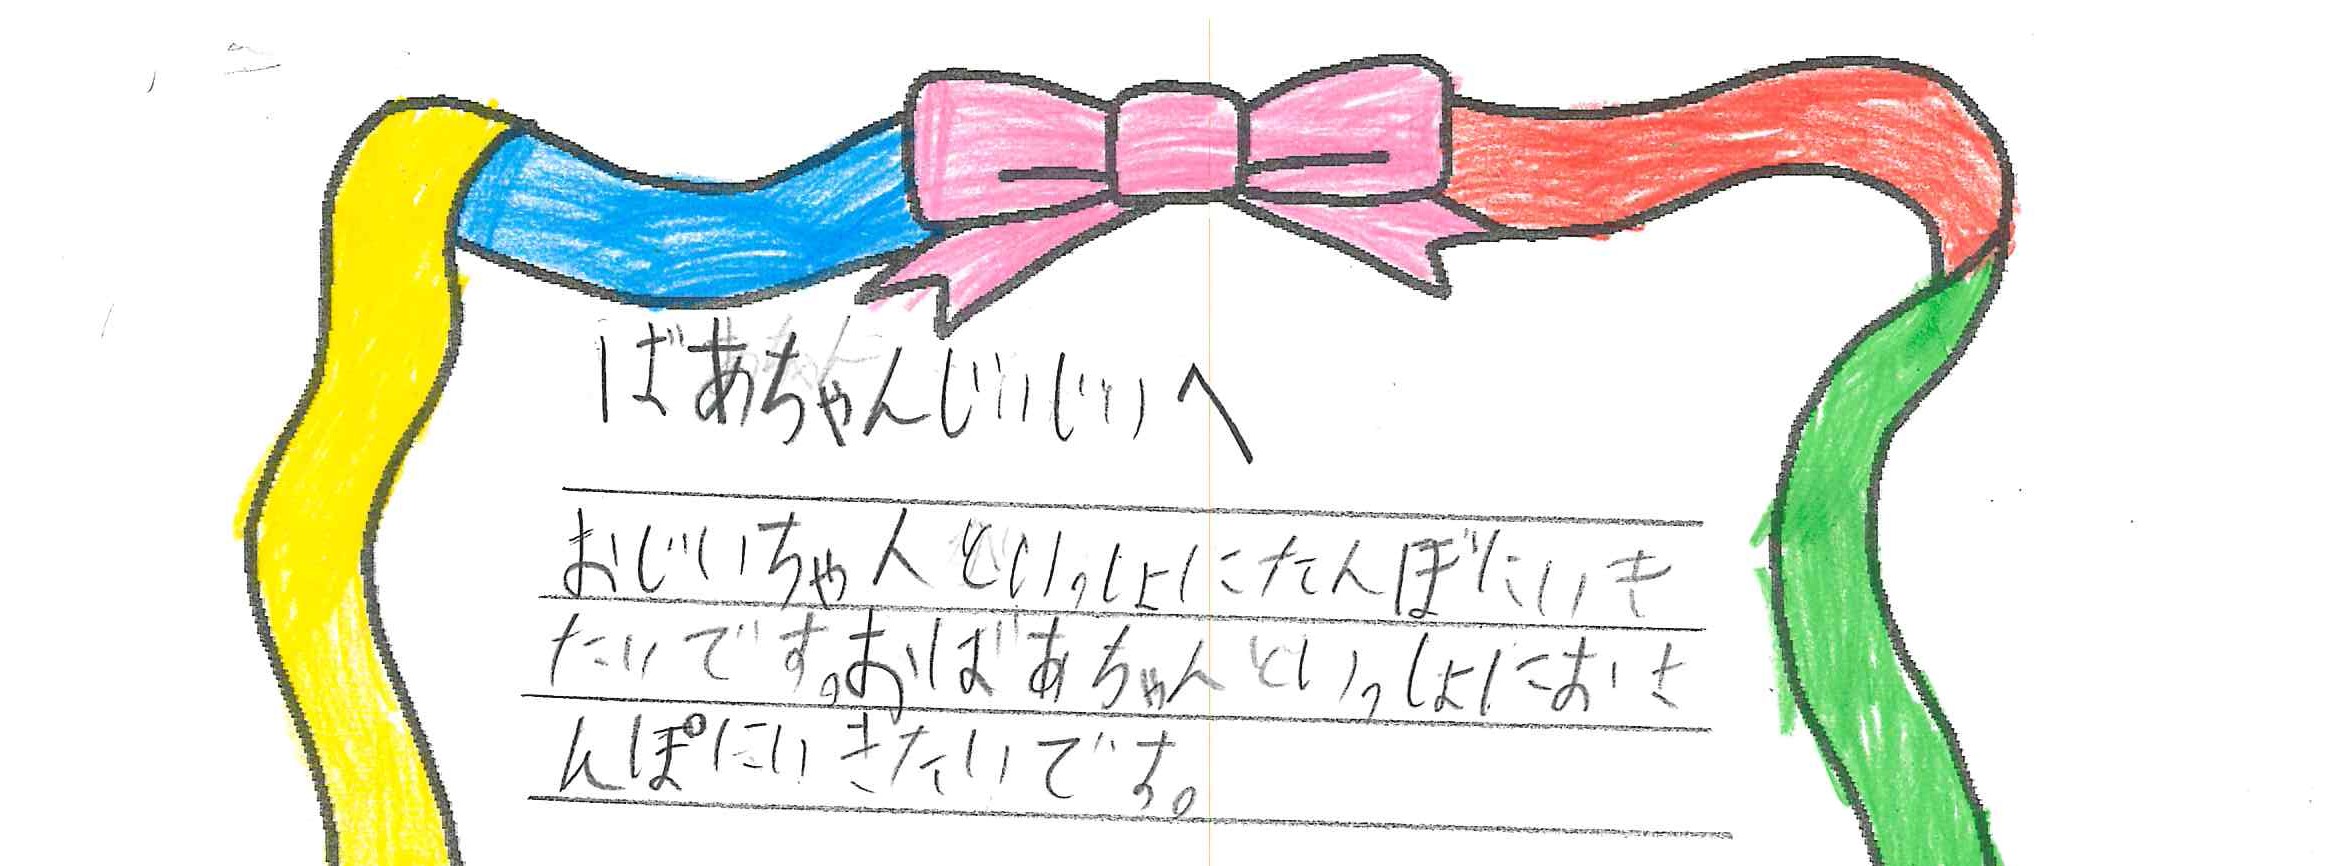 ばあちゃんじいじいへ
おじいちゃんといっしょにたんぼにいき
たいです。おばあちゃんといっしょにおさ
んぽにいきたいです。